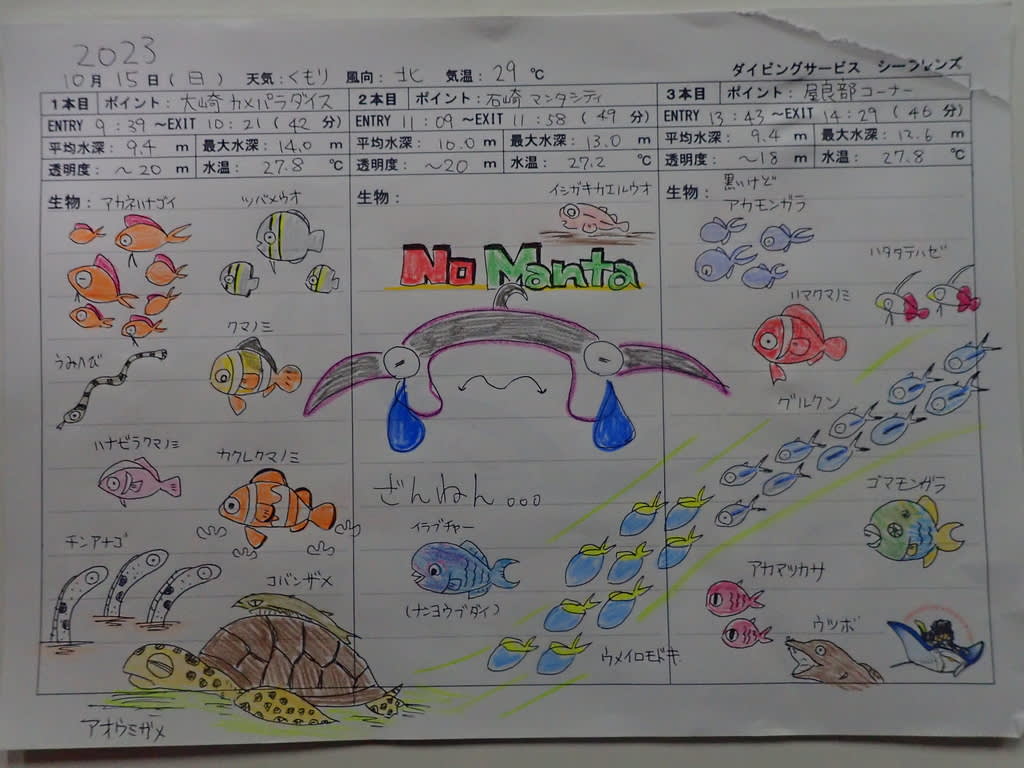 2023
10月 15日(日) 天気:くもり 風向:北 気温:29 ℃
ダイビングサービス シーフレンズ
1本目 ポイント:大崎 カメパラダイス
ENTRY 9:39 ～EXIT 10:21 (42 分)
平均水深: 9.4 m 最大水深: 14.0 m
透明度: ～20 m 水温: 27.8 ℃
生物: アカネハナゴイ
ツバメウオ
クマノミ
うみへび
ハナビラクマノミ
カクレクマノミ
チンアナゴ
コバンザメ
アオウミガメ
2本目 ポイント:石崎 マンタシティ
ENTRY 11:09 ～EXIT 11:58 (49 分)
平均水深: 10.0 m 最大水深: 13.0 m
透明度: ～20 m 水温: 27.2 ℃
生物:
イシガキカエルウオ
No Manta
ざんねん。。。
イラブチャー
(ナンヨウブダイ)
ウメイロモドキ
3本目 ポイント:屋良部コーナー
ENTRY 13:43 ～EXIT 14:29 (46 分)
平均水深: 9.4 m 最大水深: 12.6 m
透明度: ～18 m 水温: 27.8 ℃
生物: 黒いけど
アカモンガラ
ハタタテハゼ
ハマクマノミ
グルクン
ゴマモンガラ
アカマツカサ
ウツボ